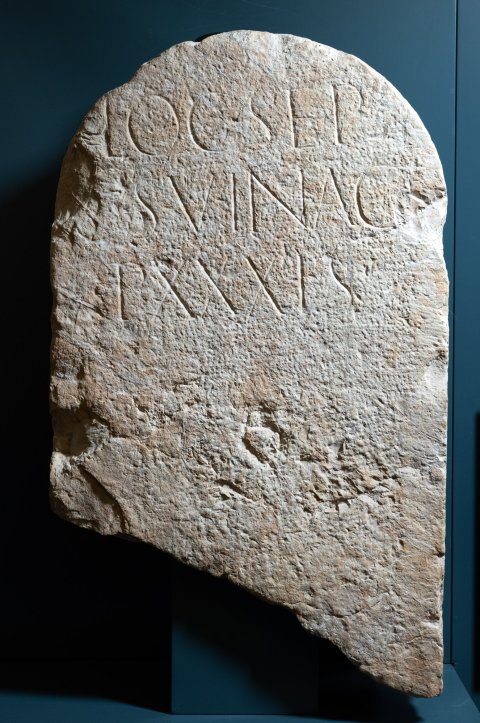 LOC·SEP
SVINAC
PXXXIS